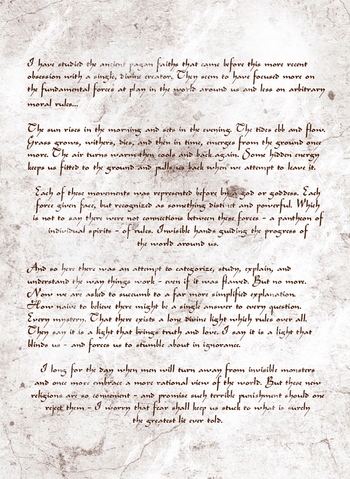 I have studied the ancient pagan faiths that came before this more recent
obsession with a single, divine creator. They seem to have focused more on
the fundamental forces at play in the world around us and less on arbitrary
moral rules...
The sun rises in the morning and sets in the evening. The tides ebb and flow.
Grass grows, withers, dies, and then in time, emerges from the ground once
more. The air turns warm then cools and back again. Some hidden energy
keeps us fitted to the ground and pulls us back when we attempt to leave it.
Each of these movements was represented before by a god or goddess. Each
force given face, but recognized as something distinct and powerful. Which
is not to say there were not connections between these forces - a pantheon of
individual spirits - of rules. Invisible hands guiding the progress of
the world around us.
And so here there was an attempt to categorize, study, explain, and
understand the way things work - even if it was flawed. But no more.
Now we are asked to succumb to a far more simplified explanation.
How naive to believe there might be a single answer to every question.
Every mystery. That there exists a lone divine light which rules over all.
They say it is a light that brings truth and love. I say it is a light that
blinds us - and forces us to stumble about in ignorance.
I long for the day when men will turn away from invisible monsters
and once more embrace a more rational view of the world. But these new
religions are so convenient - and promise such terrible punishment should one
reject them - I worry that fear shall keep us stuck to what is surely
the greatest lie ever told.